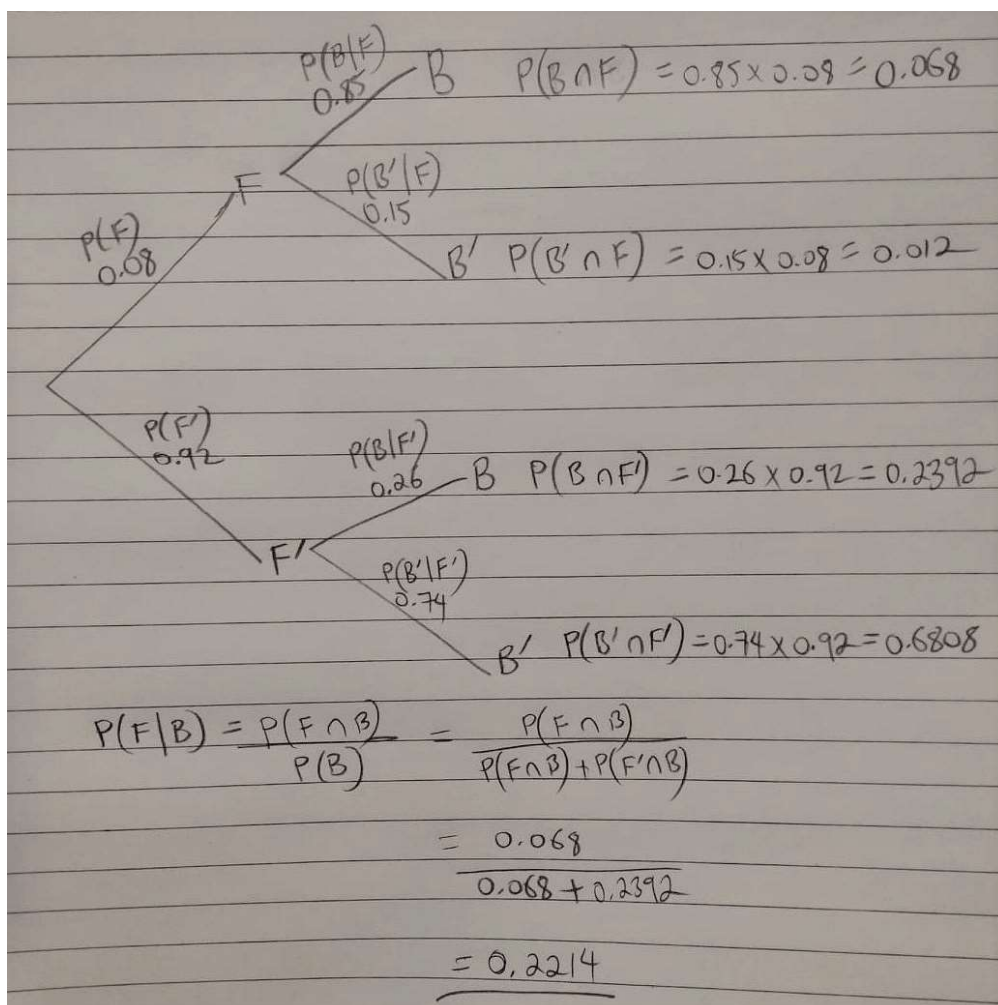 P(B|F)
0.85
B P(B∩F) = 0.85 x 0.08 = 0.068
F
P(B'|F)
0.15
P(F)
0.08
B' P(B'∩F) = 0.15 x 0.08 = 0.012
P(F')
0.92
P(B|F')
0.26
B P(B∩F') = 0.26 x 0.92 = 0.2392
F'
P(B'|F')
0.74
B' P(B'∩F') = 0.74 x 0.92 = 0.6808
P(F|B) = P(F∩B) = P(F∩B)
P(B) P(F∩B)+P(F'∩B)
= 0.068
0.068 + 0.2392
= 0.2214